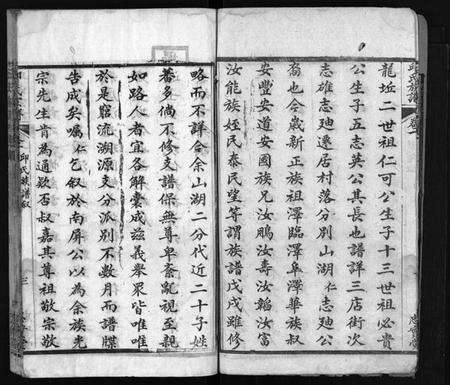 龍坵二世祖仁可公生子十三世祖必貴
公生子五志英公其長也譜詳三店街次
志雄志廸遷居村落分別山湖仁志廸公
裔也今歲新正族祖澤臨澤阜澤華族叔
安豐安道安國族兄汝鵬汝壽汝韜汝富
汝能族姪民泰民望等謂族譜戊戌雖修
略而不詳今余山湖二分代近二十子姓
蕃多倘不修支譜保無尊卑紊亂視至親
如路人者宜各解囊成玆義舉衆皆唯唯
於是窮流溯源支分派別不數月而譜牒
告成矣囑仁乞叙於南屏公以為余族光
宗先生肯為通欵否叔嘉其尊祖敬宗敬
邱氏族譜
三